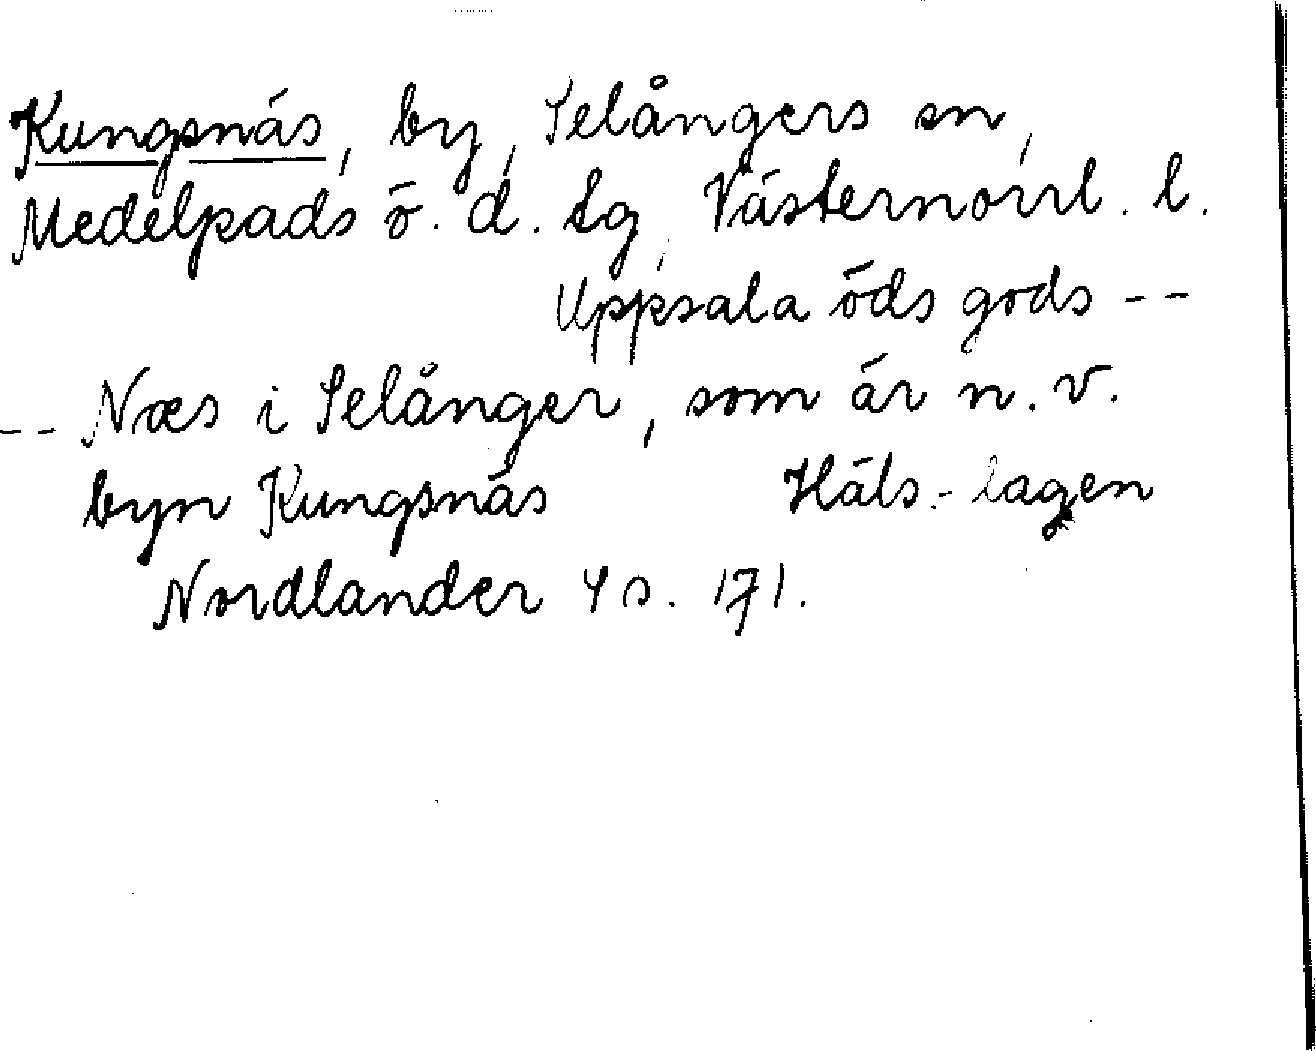 Kungsnäs, by, Selångers sn,
Medelpads ö. d. tg, Västernorrl. l.
Uppsala öds gods --
-- Næs i Selånger, som är n. v.
byn Kungsnäs Häls.-lagen
Nordlander 4 s. 171.